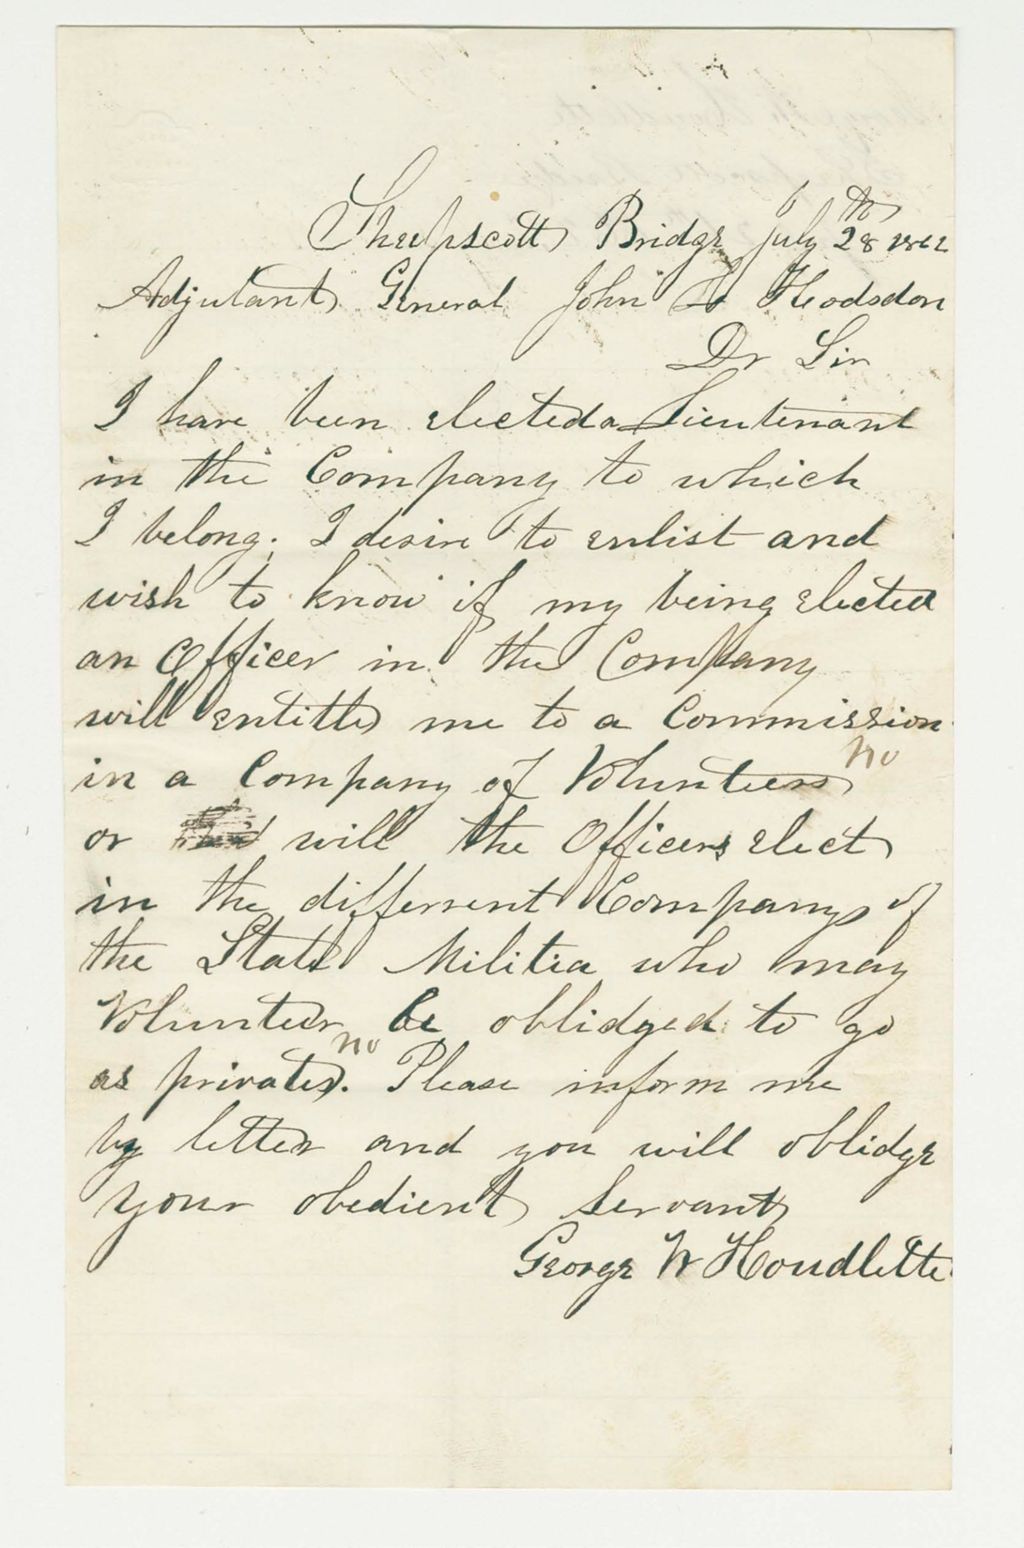 Sheepscott Bridge July 28th 1862
Adjutant General John L Hodsdon
Dr Sir
I have been elected a Lieutenant
in the Company to which
I belong. I desire to enlist and
wish to know if my being elected
an Officer in the Company
will entitle me to a Commission
no
in a Company of Volunteers
or will the Officers elect
in the different Companys of
the State Militia who may
Volunteer be oblidged to go
no
as privates. Please inform me
by letter and you will oblidge
your obedient Servant
George W Houdlette